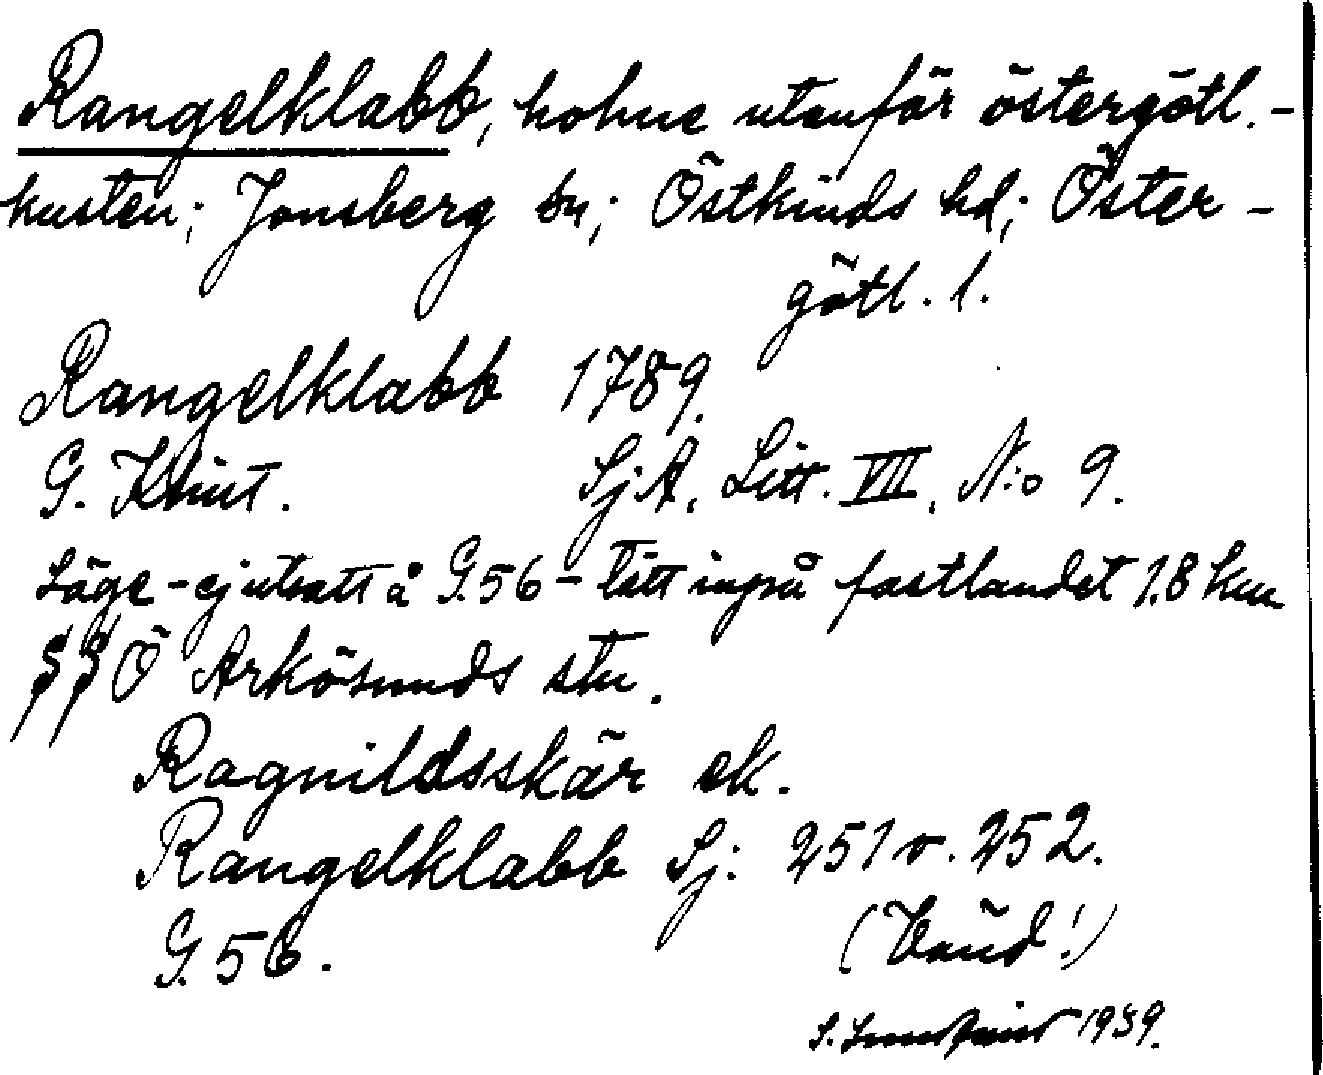 Rangelklabb, holme utanför östergötl.-
kusten; Jonsberg sn; Östkinds hd; Öster-
götl. l.
Rangelklabb 1789.
G. Klint. Sj.A. Litt. VII. N:o 9.
Läge - ej utsatt å G.56 - tätt inpå fastlandet 1.8 km
§§ Ö Arkösunds stn.
Ragnildsskär ek.
Rangelklabb Sj: 251 v. 252.
G. 56.
(Vänd!)
S. 1939.